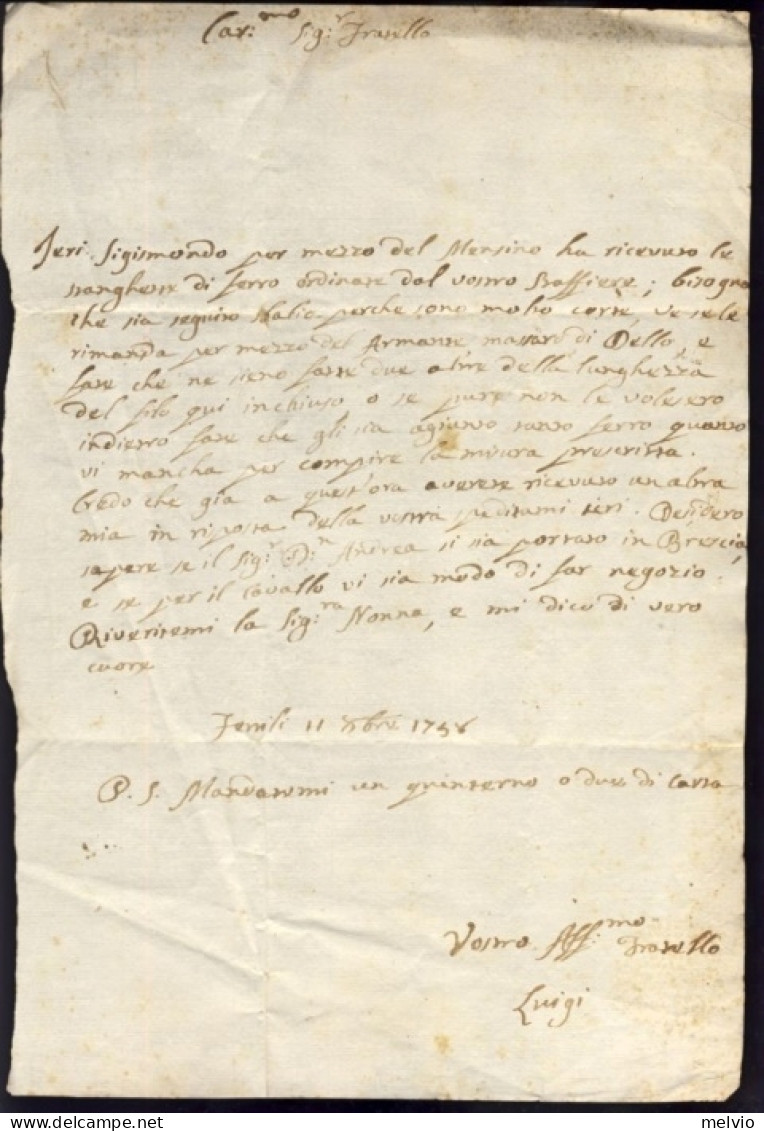 Car.mo Sig.r Fratello
Jeri Sigismondo per mezzo del Mensino ha ricevuto le
stanghette di ferro ordinate dal vostro Staffiere; bisogna
che sia seguito sbalio perche sono molto corte, ve se le
rimanda per mezzo del Armante massaro di Dello, e
fate che ne sieno fatte due altre della lunghezza
del filo qui inchiuso o se pure non le volesero
indietro fate che gli sia agiunto tanto ferro quanto
vi mancha per compire la misura prescritta.
Credo che gia a quest'ora averete ricevuto un altra
mia in riposta della vostra speditami ieri. Desidero
sapere se il Sig.r D.n Andrea si sia portato in Brescia,
e se per il cavallo vi sia modo di far negozio.
Riveritemi la Sig.ra Nonna, e mi dico di vero
cuore
Fenili 11 Xbre 1756
P. S. Mandatemi un quinterno o due di carta
Vostro Aff.mo Fratello
Luigi
melvio